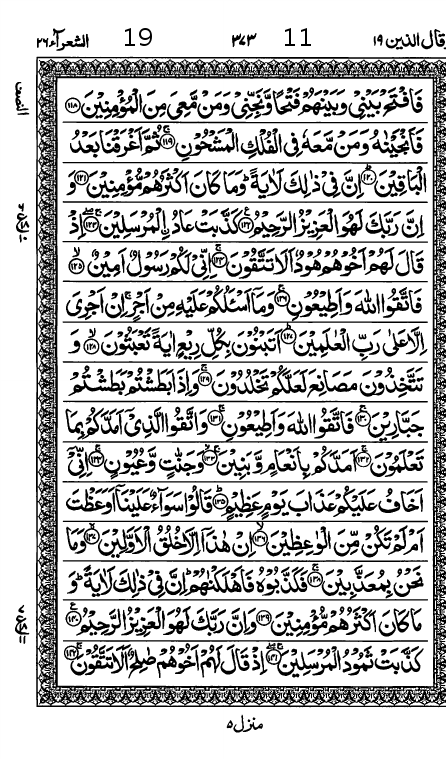 قال الذين ۱۹ 11 ۳۷۳ 19 الشعرآء ۲۶
فَافْتَحْ بَيْنِيْ وَبَيْنَهُمْ فَتْحًا وَّنَجِّنِيْ وَمَنْ مَّعِيَ مِنَ الْمُؤْمِنِيْنَ ﴿۱۱۸﴾
فَاَنْجَيْنٰهُ وَمَنْ مَّعَهٗ فِي الْفُلْكِ الْمَشْحُوْنِ ﴿۱۱۹﴾ ثُمَّ اَغْرَقْنَا بَعْدُ
الْبٰقِيْنَ ﴿۱۲۰﴾ اِنَّ فِيْ ذٰلِكَ لَاٰيَةً ؕ وَمَا كَانَ اَكْثَرُهُمْ مُّؤْمِنِيْنَ ﴿۱۲۱﴾ وَ
اِنَّ رَبَّكَ لَهُوَ الْعَزِيْزُ الرَّحِيْمُ ﴿۱۲۲﴾ كَذَّبَتْ عَادُ ۨالْمُرْسَلِيْنَ ﴿۱۲۳﴾ اِذْ
قَالَ لَهُمْ اَخُوْهُمْ هُوْدٌ اَلَا تَتَّقُوْنَ ﴿۱۲۴﴾ اِنِّيْ لَكُمْ رَسُوْلٌ اَمِيْنٌ ﴿۱۲۵﴾
فَاتَّقُوا اللّٰهَ وَاَطِيْعُوْنِ ﴿۱۲۶﴾ وَمَاۤ اَسْـَٔلُكُمْ عَلَيْهِ مِنْ اَجْرٍ ۚ اِنْ اَجْرِيَ
اِلَّا عَلٰى رَبِّ الْعٰلَمِيْنَ ﴿۱۲۷﴾ اَتَبْنُوْنَ بِكُلِّ رِيْعٍ اٰيَةً تَعْبَثُوْنَ ﴿۱۲۸﴾ وَ
تَتَّخِذُوْنَ مَصَانِعَ لَعَلَّكُمْ تَخْلُدُوْنَ ﴿۱۲۹﴾ وَاِذَا بَطَشْتُمْ بَطَشْتُمْ
جَبَّارِيْنَ ﴿۱۳۰﴾ فَاتَّقُوا اللّٰهَ وَاَطِيْعُوْنِ ﴿۱۳۱﴾ وَاتَّقُوا الَّذِيْۤ اَمَدَّكُمْ بِمَا
تَعْلَمُوْنَ ﴿۱۳۲﴾ اَمَدَّكُمْ بِاَنْعَامٍ وَّبَنِيْنَ ﴿۱۳۳﴾ وَجَنّٰتٍ وَّعُيُوْنٍ ﴿۱۳۴﴾ اِنِّيْۤ
اَخَافُ عَلَيْكُمْ عَذَابَ يَوْمٍ عَظِيْمٍ ﴿۱۳۵﴾ قَالُوْا سَوَآءٌ عَلَيْنَاۤ اَوَعَظْتَ
اَمْ لَمْ تَكُنْ مِّنَ الْوٰعِظِيْنَ ﴿۱۳۶﴾ اِنْ هٰذَاۤ اِلَّا خُلُقُ الْاَوَّلِيْنَ ﴿۱۳۷﴾ وَمَا
نَحْنُ بِمُعَذَّبِيْنَ ﴿۱۳۸﴾ فَكَذَّبُوْهُ فَاَهْلَكْنٰهُمْ ؕ اِنَّ فِيْ ذٰلِكَ لَاٰيَةً ؕ وَ
مَا كَانَ اَكْثَرُهُمْ مُّؤْمِنِيْنَ ﴿۱۳۹﴾ وَاِنَّ رَبَّكَ لَهُوَ الْعَزِيْزُ الرَّحِيْمُ ﴿۱۴۰﴾
كَذَّبَتْ ثَمُوْدُ الْمُرْسَلِيْنَ ﴿۱۴۱﴾ اِذْ قَالَ لَهُمْ اَخُوْهُمْ صٰلِحٌ اَلَا تَتَّقُوْنَ ﴿۱۴۲﴾
منزل ۵